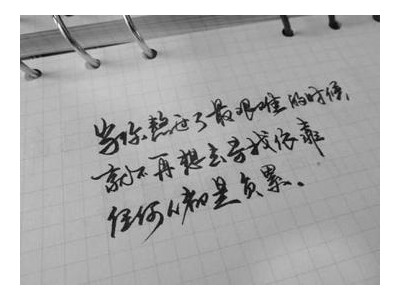 当你熬过了最艰难的时候，
就不再想去寻找依靠
任何人都是负累。